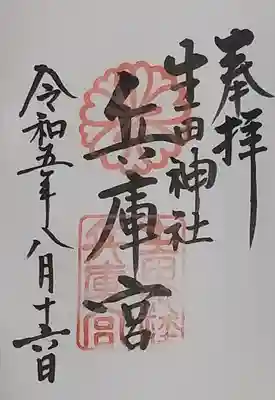 奉拝
生田神社
兵庫宮
令和五年八月十六日
兵庫宮